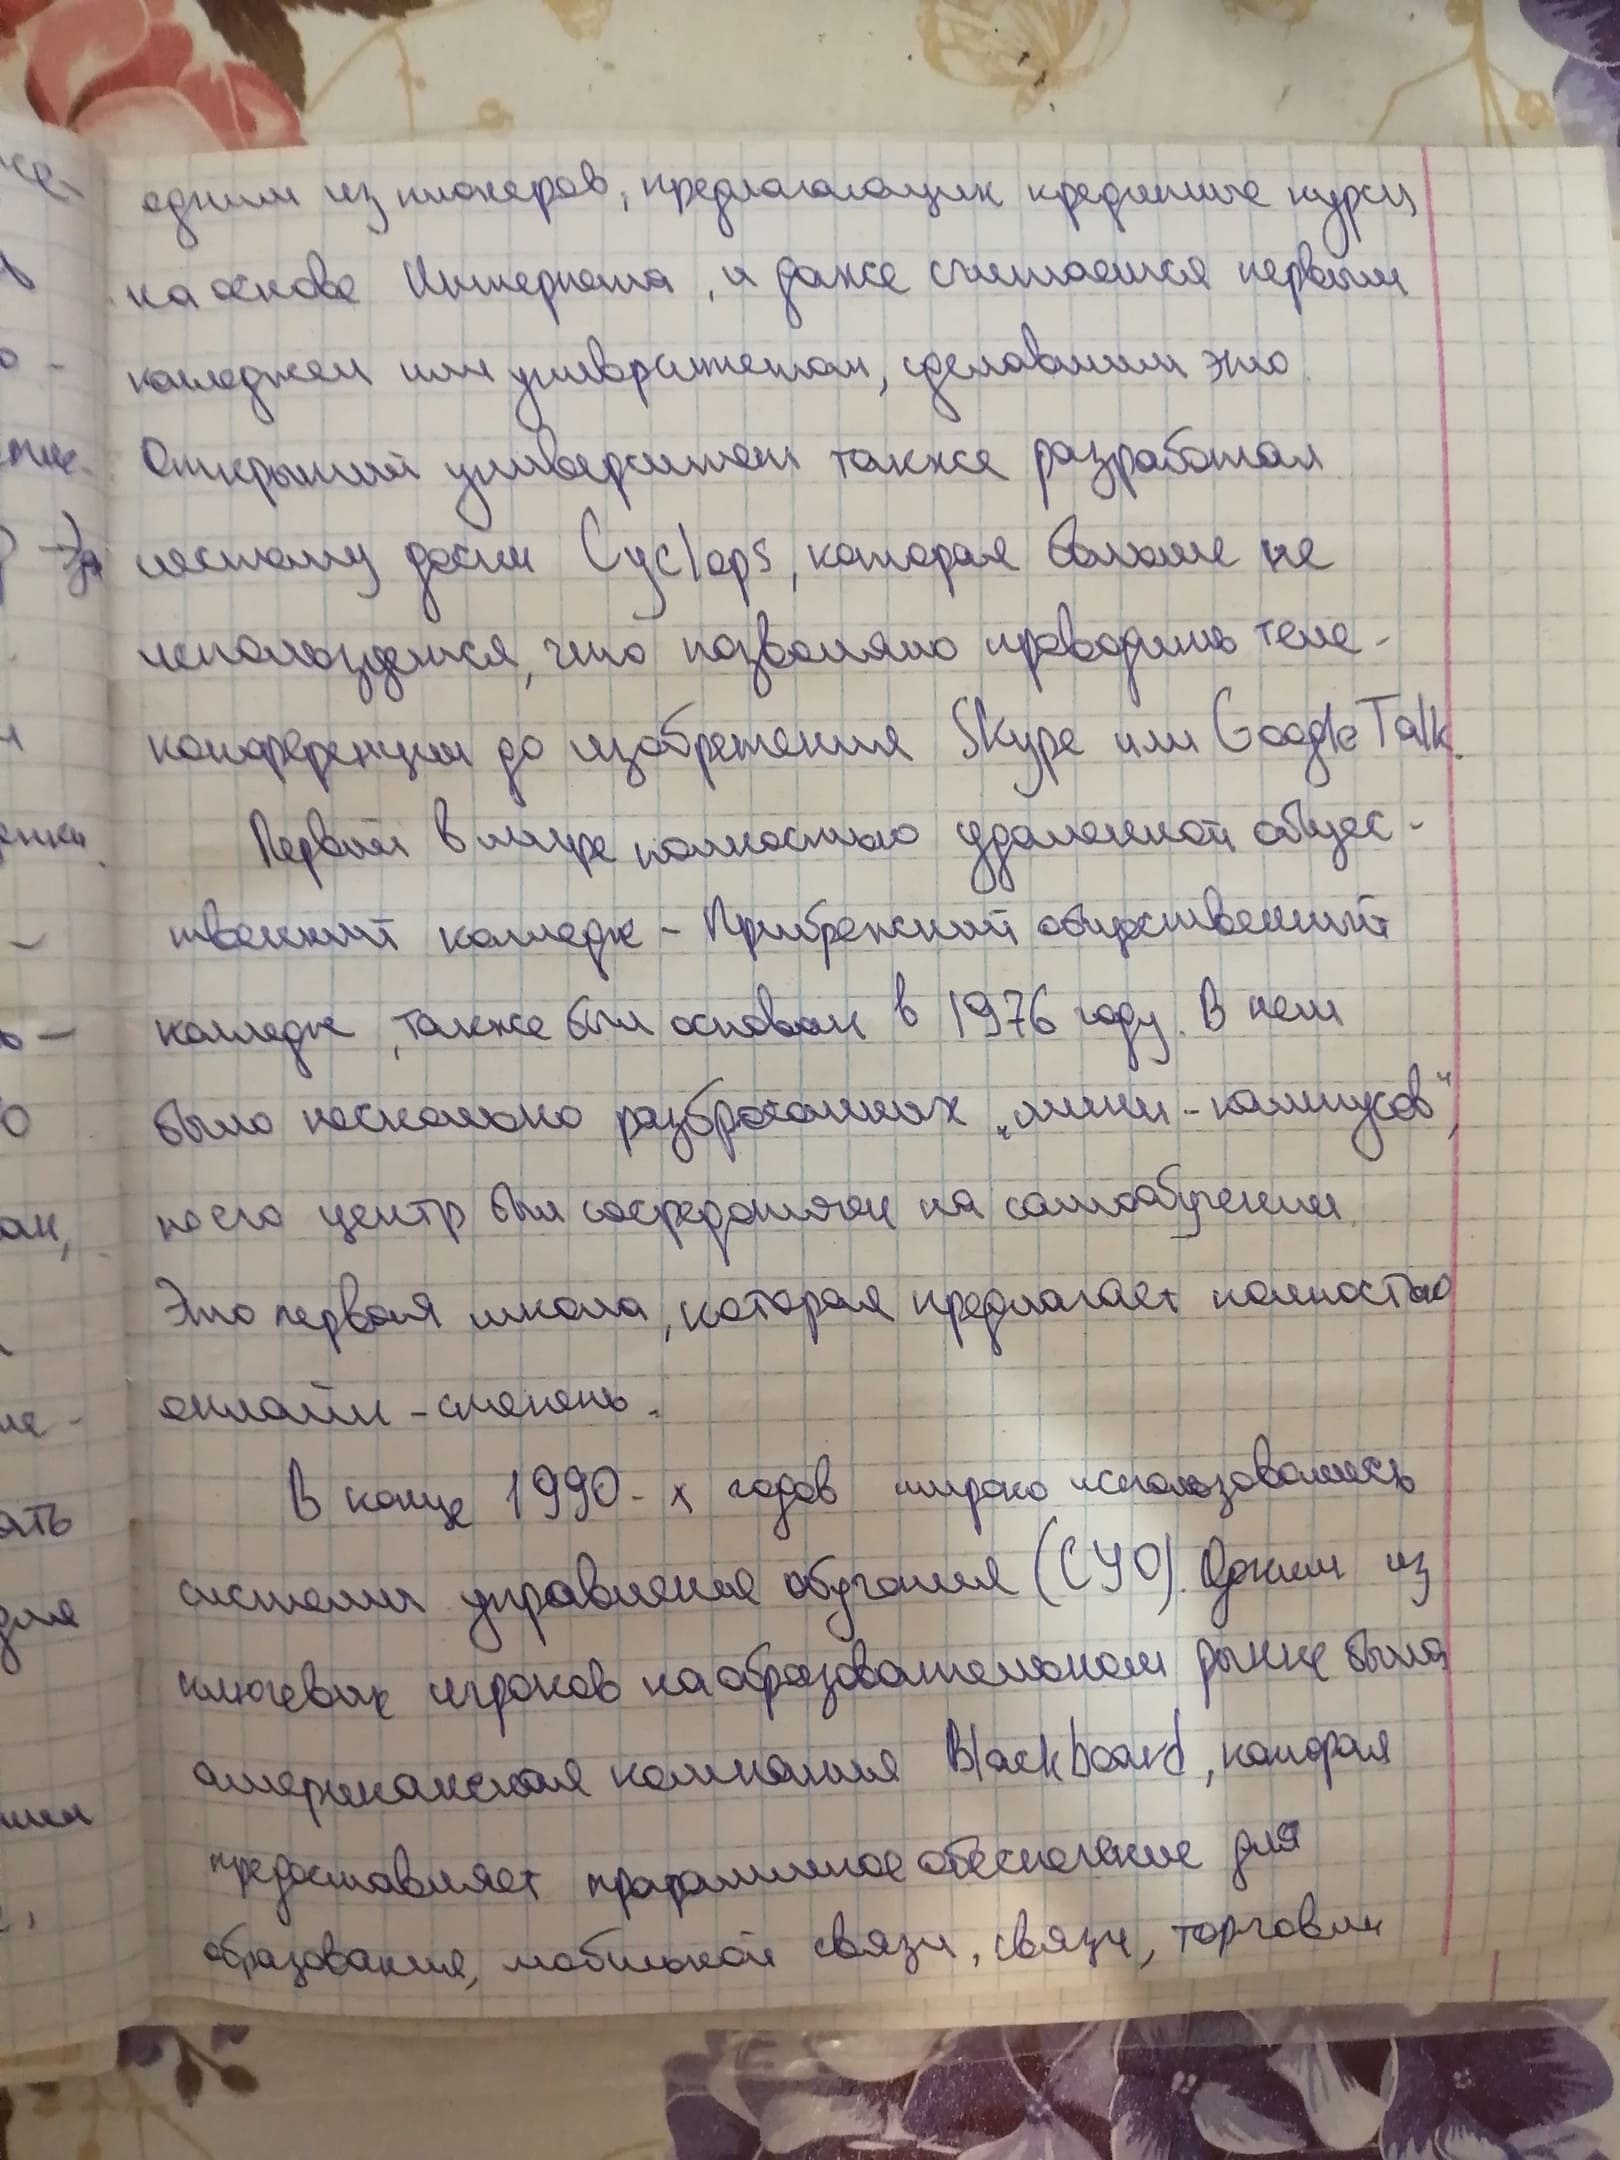 одним из пионеров, предлагающих кредитные курсы
на основе Интернета, и даже считается первым
колледжем или университетом, сделавшим это.
Открытый университет также разработал
систему доски Cyclops, которая больше не
используется, что позволяло проводить теле-
конференции до изобретения Skype или Google Talk.
Первый в мире полностью удаленной общес-
твенный колледж - Прибрежный общественный
колледж, также был основан в 1976 году. В нем
было несколько разбросанных „мини-кампусов",
но его центр был сосредоточен на самообучении.
Это первая школа, которая предлагает полностью
онлайн-степень.
В конце 1990-х годов широко использовались
системы управления обучения (СУО). Одним из
ключевых игроков на образовательном рынке была
американская компания Blackboard, которая
предоставляет программное обеспечение для
образования, мобильной связи, связи, торговли